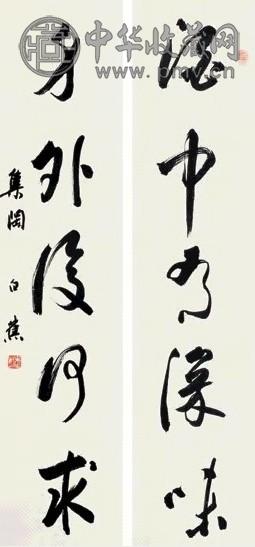 中华收藏网
www.pmv.cn
酒中有深味
身外復何求
集陶 白蕉